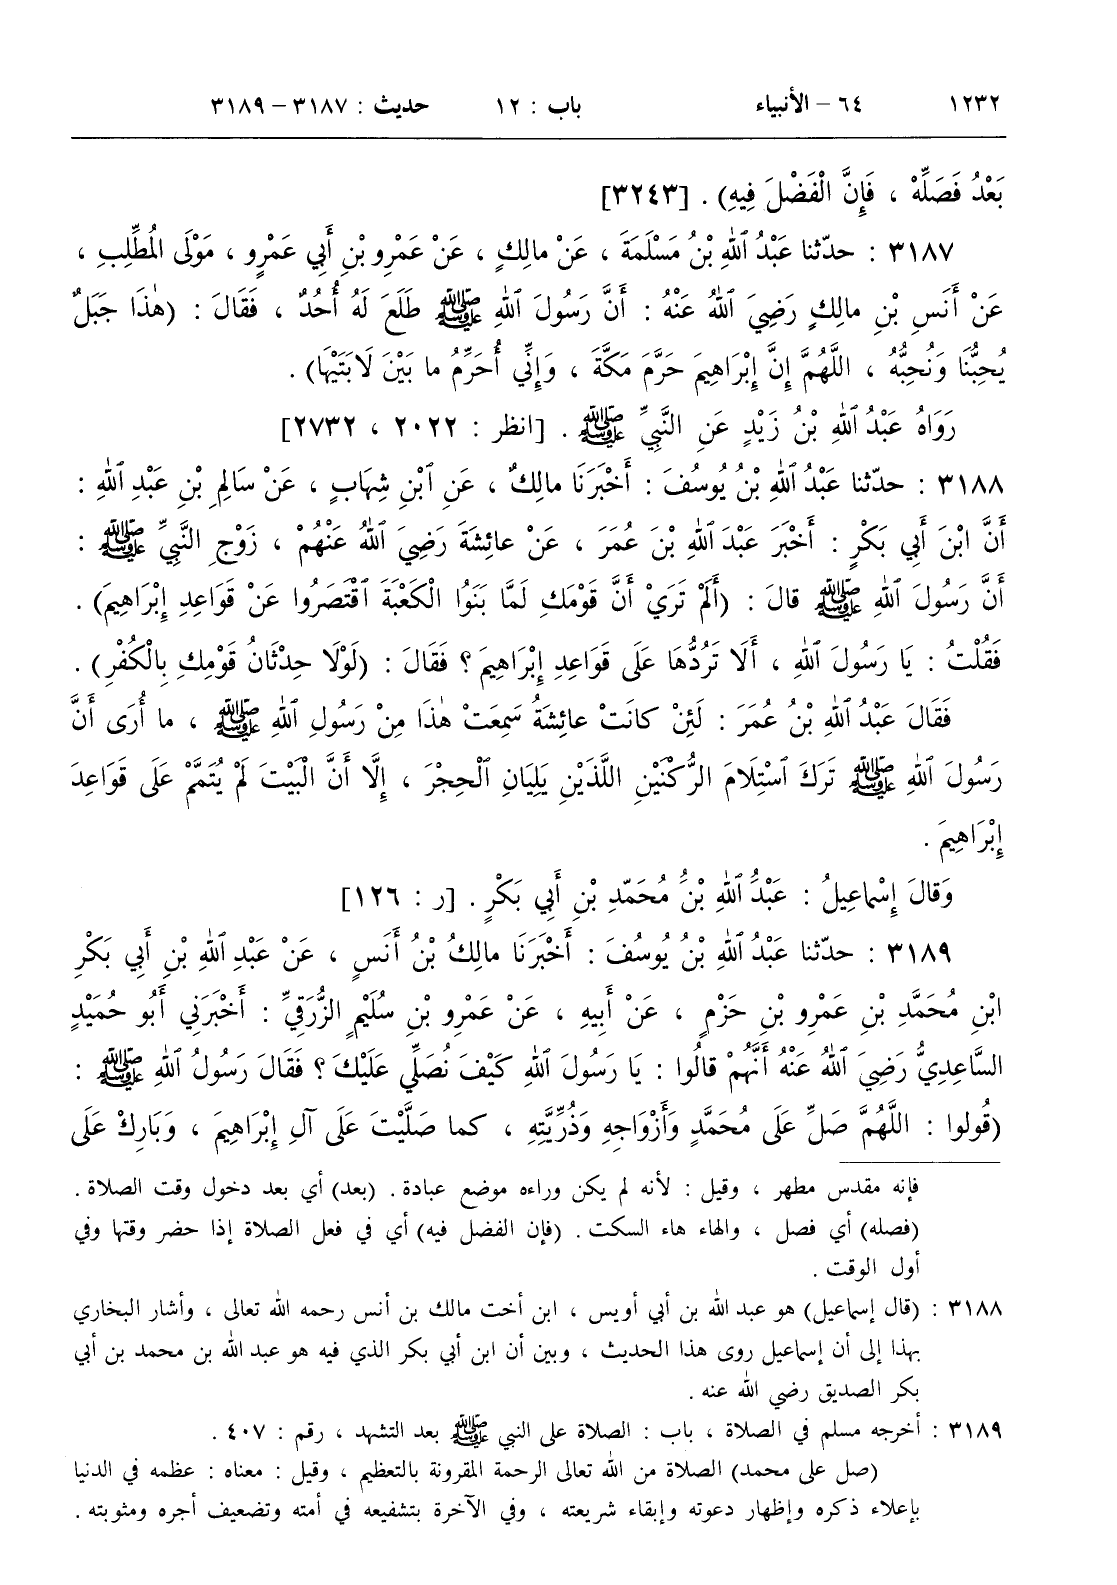 ١٢٣٢ ٦٤ – الأنبياء باب : ١٢ حديث : ٣١٨٧ – ٣١٨٩
بَعْدُ فَصَلِّهْ ، فَإِنَّ الْفَضْلَ فِيهِ) . [٣٢٤٣]
٣١٨٧ : حدّثنا عَبْدُ ٱللهِ بْنُ مَسْلَمَةَ ، عَنْ مالِكٍ ، عَنْ عَمْرِو بْنِ أَبِي عَمْرٍو ، مَوْلَى الْمُطَّلِبِ ،
عَنْ أَنَسِ بْنِ مالِكٍ رَضِيَ ٱللهُ عَنْهُ : أَنَّ رَسُولَ ٱللهِ ﷺ طَلَعَ لَهُ أُحُدٌ ، فَقَالَ : (هٰذَا جَبَلٌ
يُحِبُّنَا وَنُحِبُّهُ ، اللَّهُمَّ إِنَّ إِبْرَاهِيمَ حَرَّمَ مَكَّةَ ، وَإِنِّي أُحَرِّمُ ما بَيْنَ لَابَتَيْهَا) .
رَوَاهُ عَبْدُ ٱللهِ بْنُ زَيْدٍ عَنِ النَّبِيِّ ﷺ . [انظر : ٢٠٢٢ ، ٢٧٣٢]
٣١٨٨ : حدّثنا عَبْدُ ٱللهِ بْنُ يُوسُفَ : أَخْبَرَنَا مالِكٌ ، عَنِ ٱبْنِ شِهَابٍ ، عَنْ سَالِمِ بْنِ عَبْدِ ٱللهِ :
أَنَّ ابْنَ أَبِي بَكْرٍ : أَخْبَرَ عَبْدَ ٱللهِ بْنَ عُمَرَ ، عَنْ عائِشَةَ رَضِيَ ٱللهُ عَنْهُمْ ، زَوْجِ النَّبِيِّ ﷺ :
أَنَّ رَسُولَ ٱللهِ ﷺ قالَ : (أَلَمْ تَرَيْ أَنَّ قَوْمَكِ لَمَّا بَنَوُا الْكَعْبَةَ ٱقْتَصَرُوا عَنْ قَوَاعِدِ إِبْرَاهِيمَ) .
فَقُلْتُ : يَا رَسُولَ ٱللهِ ، أَلَا تَرُدُّهَا عَلَى قَوَاعِدِ إِبْرَاهِيمَ ؟ فَقَالَ : (لَوْلَا حِدْثَانُ قَوْمِكِ بِالْكُفْرِ) .
فَقَالَ عَبْدُ ٱللهِ بْنُ عُمَرَ : لَئِنْ كانَتْ عائِشَةُ سَمِعَتْ هٰذَا مِنْ رَسُولِ ٱللهِ ﷺ ، ما أُرَى أَنَّ
رَسُولَ ٱللهِ ﷺ تَرَكَ ٱسْتِلَامَ الرُّكْنَيْنِ اللَّذَيْنِ يَلِيَانِ الْحِجْرَ ، إِلَّا أَنَّ الْبَيْتَ لَمْ يُتَمَّمْ عَلَى قَوَاعِدَ
إِبْرَاهِيمَ .
وَقالَ إِسْمَاعِيلُ : عَبْدُ ٱللهِ بْنُ مُحَمَّدِ بْنِ أَبِي بَكْرٍ . [ر : ١٢٦]
٣١٨٩ : حدّثنا عَبْدُ ٱللهِ بْنُ يُوسُفَ : أَخْبَرَنَا مالِكُ بْنُ أَنَسٍ ، عَنْ عَبْدِ ٱللهِ بْنِ أَبِي بَكْرِ
ابْنِ مُحَمَّدِ بْنِ عَمْرِو بْنِ حَزْمٍ ، عَنْ أَبِيهِ ، عَنْ عَمْرِو بْنِ سُلَيْمٍ الزُّرَقِيِّ : أَخْبَرَنِي أَبُو حُمَيْدٍ
السَّاعِدِيُّ رَضِيَ ٱللهُ عَنْهُ أَنَّهُمْ قالُوا : يَا رَسُولَ ٱللهِ كَيْفَ نُصَلِّي عَلَيْكَ ؟ فَقَالَ رَسُولُ ٱللهِ ﷺ :
(قُولوا : اللَّهُمَّ صَلِّ عَلَى مُحَمَّدٍ وَأَزْوَاجِهِ وَذُرِّيَّتِهِ ، كما صَلَّيْتَ عَلَى آلِ إِبْرَاهِيمَ ، وَبَارِكْ عَلَى
فإنه مقدس مطهر ، وقيل : لأنه لم يكن وراءه موضع عبادة . (بعد) أي بعد دخول وقت الصلاة .
(فصله) أي فصل ، والهاء هاء السكت . (فإن الفضل فيه) أي في فعل الصلاة إذا حضر وقتها وفي
أول الوقت .
٣١٨٨ : (قال إسماعيل) هو عبد الله بن أبي أويس ، ابن أخت مالك بن أنس رحمه الله تعالى ، وأشار البخاري
بهذا إلى أن إسماعيل روى هذا الحديث ، وبين أن ابن أبي بكر الذي فيه هو عبد الله بن محمد بن أبي
بكر الصديق رضي الله عنه .
٣١٨٩ : أخرجه مسلم في الصلاة ، باب : الصلاة على النبي ﷺ بعد التشهد ، رقم : ٤٠٧ .
(صل على محمد) الصلاة من الله تعالى الرحمة المقرونة بالتعظيم ، وقيل : معناه : عظمه في الدنيا
بإعلاء ذكره وإظهار دعوته وإبقاء شريعته ، وفي الآخرة بتشفيعه في أمته وتضعيف أجره ومثوبته .